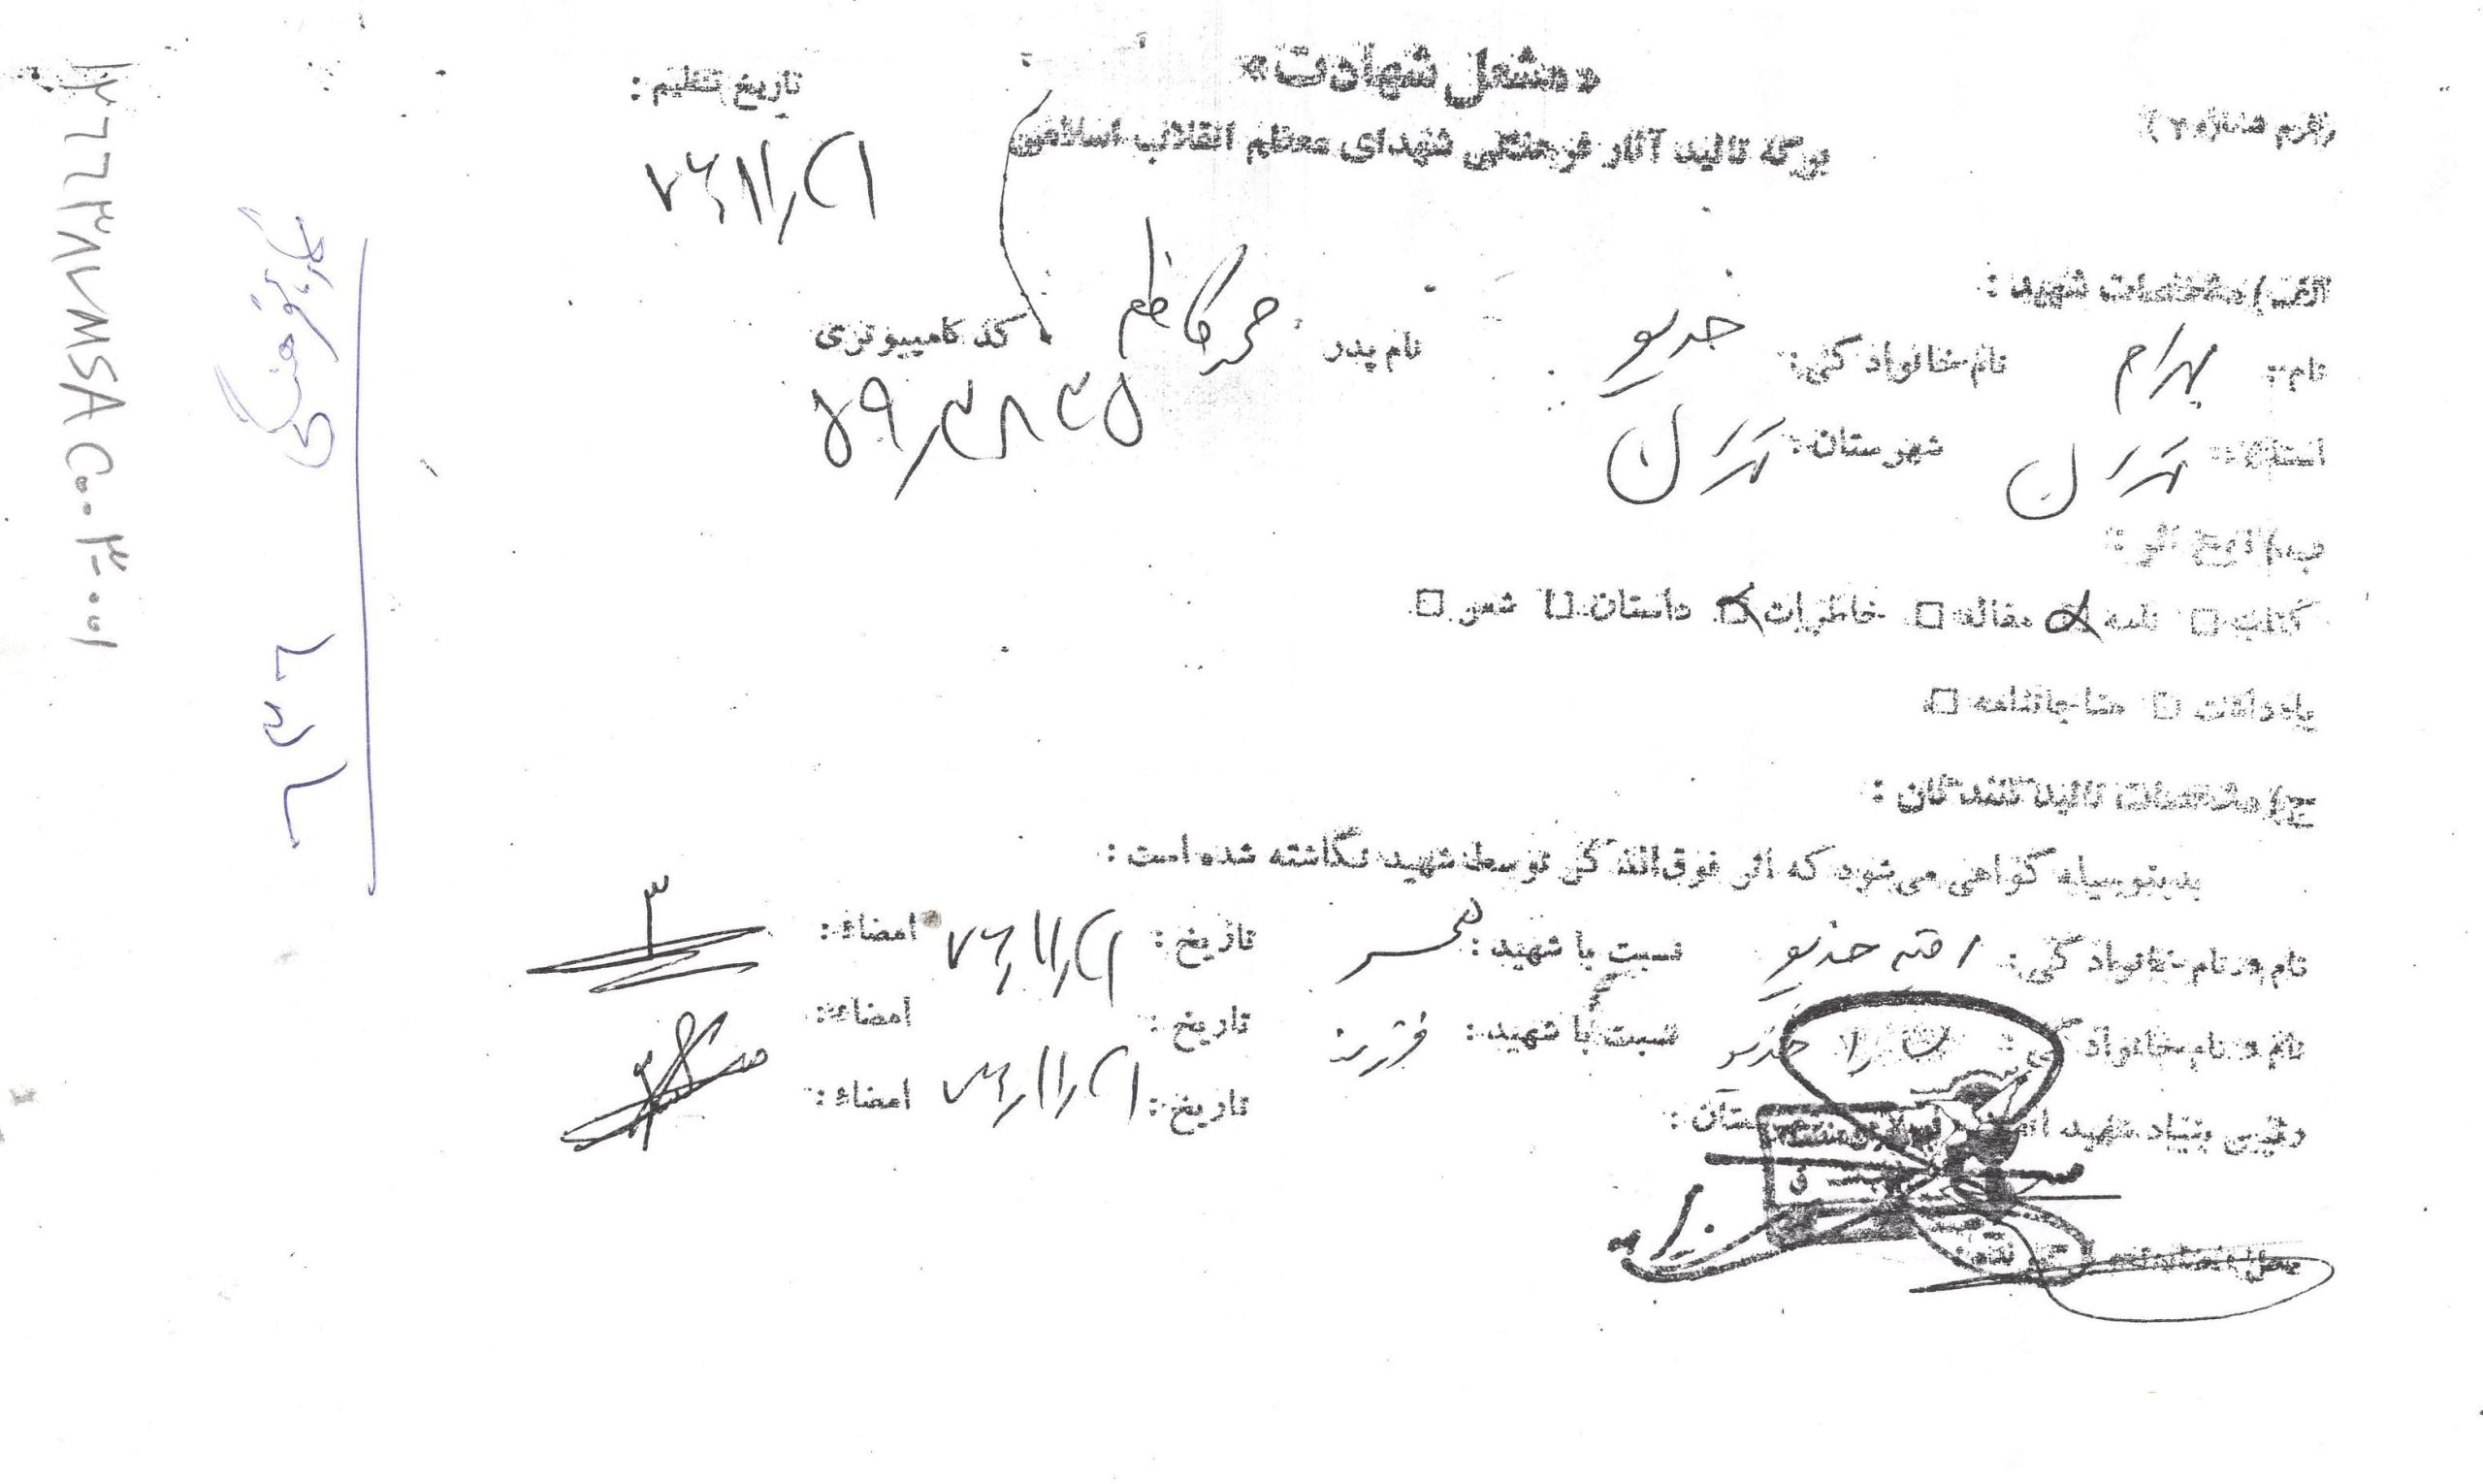 «مشعل شهادت»
(فرم شماره ۲)
تاریخ تنظیم:
برگه تائید آثار فرهنگی شهدای معظم انقلاب اسلامی
۷۶/۱۱/۲۱
الف) مشخصات شهید:
نام: بهرام نام خانوادگی: خدیو نام پدر: محمدکاظم کد کامپیوتری
استان: تهران شهرستان: تهران
ب) نوع اثر:
کتاب □ نامه ☒ مقاله □ خاطرات ☒ داستان □ شعر □
یادداشت □ مناجاتنامه □
ج) مشخصات تائید کنندگان:
بدینوسیله گواهی می‌شود که اثر فوق‌الذکر توسط شهید نگاشته شده است:
نام و نام خانوادگی: خدیو نسبت با شهید: همسر تاریخ: ۷۶/۱۱/۲۱ امضاء:
نام و نام خانوادگی: خدیو نسبت با شهید: فرزند تاریخ: ۷۶/۱۱/۲۱ امضاء:
رئیس بنیاد شهید تاریخ: امضاء:
آثار فرهنگی
۶۳۶